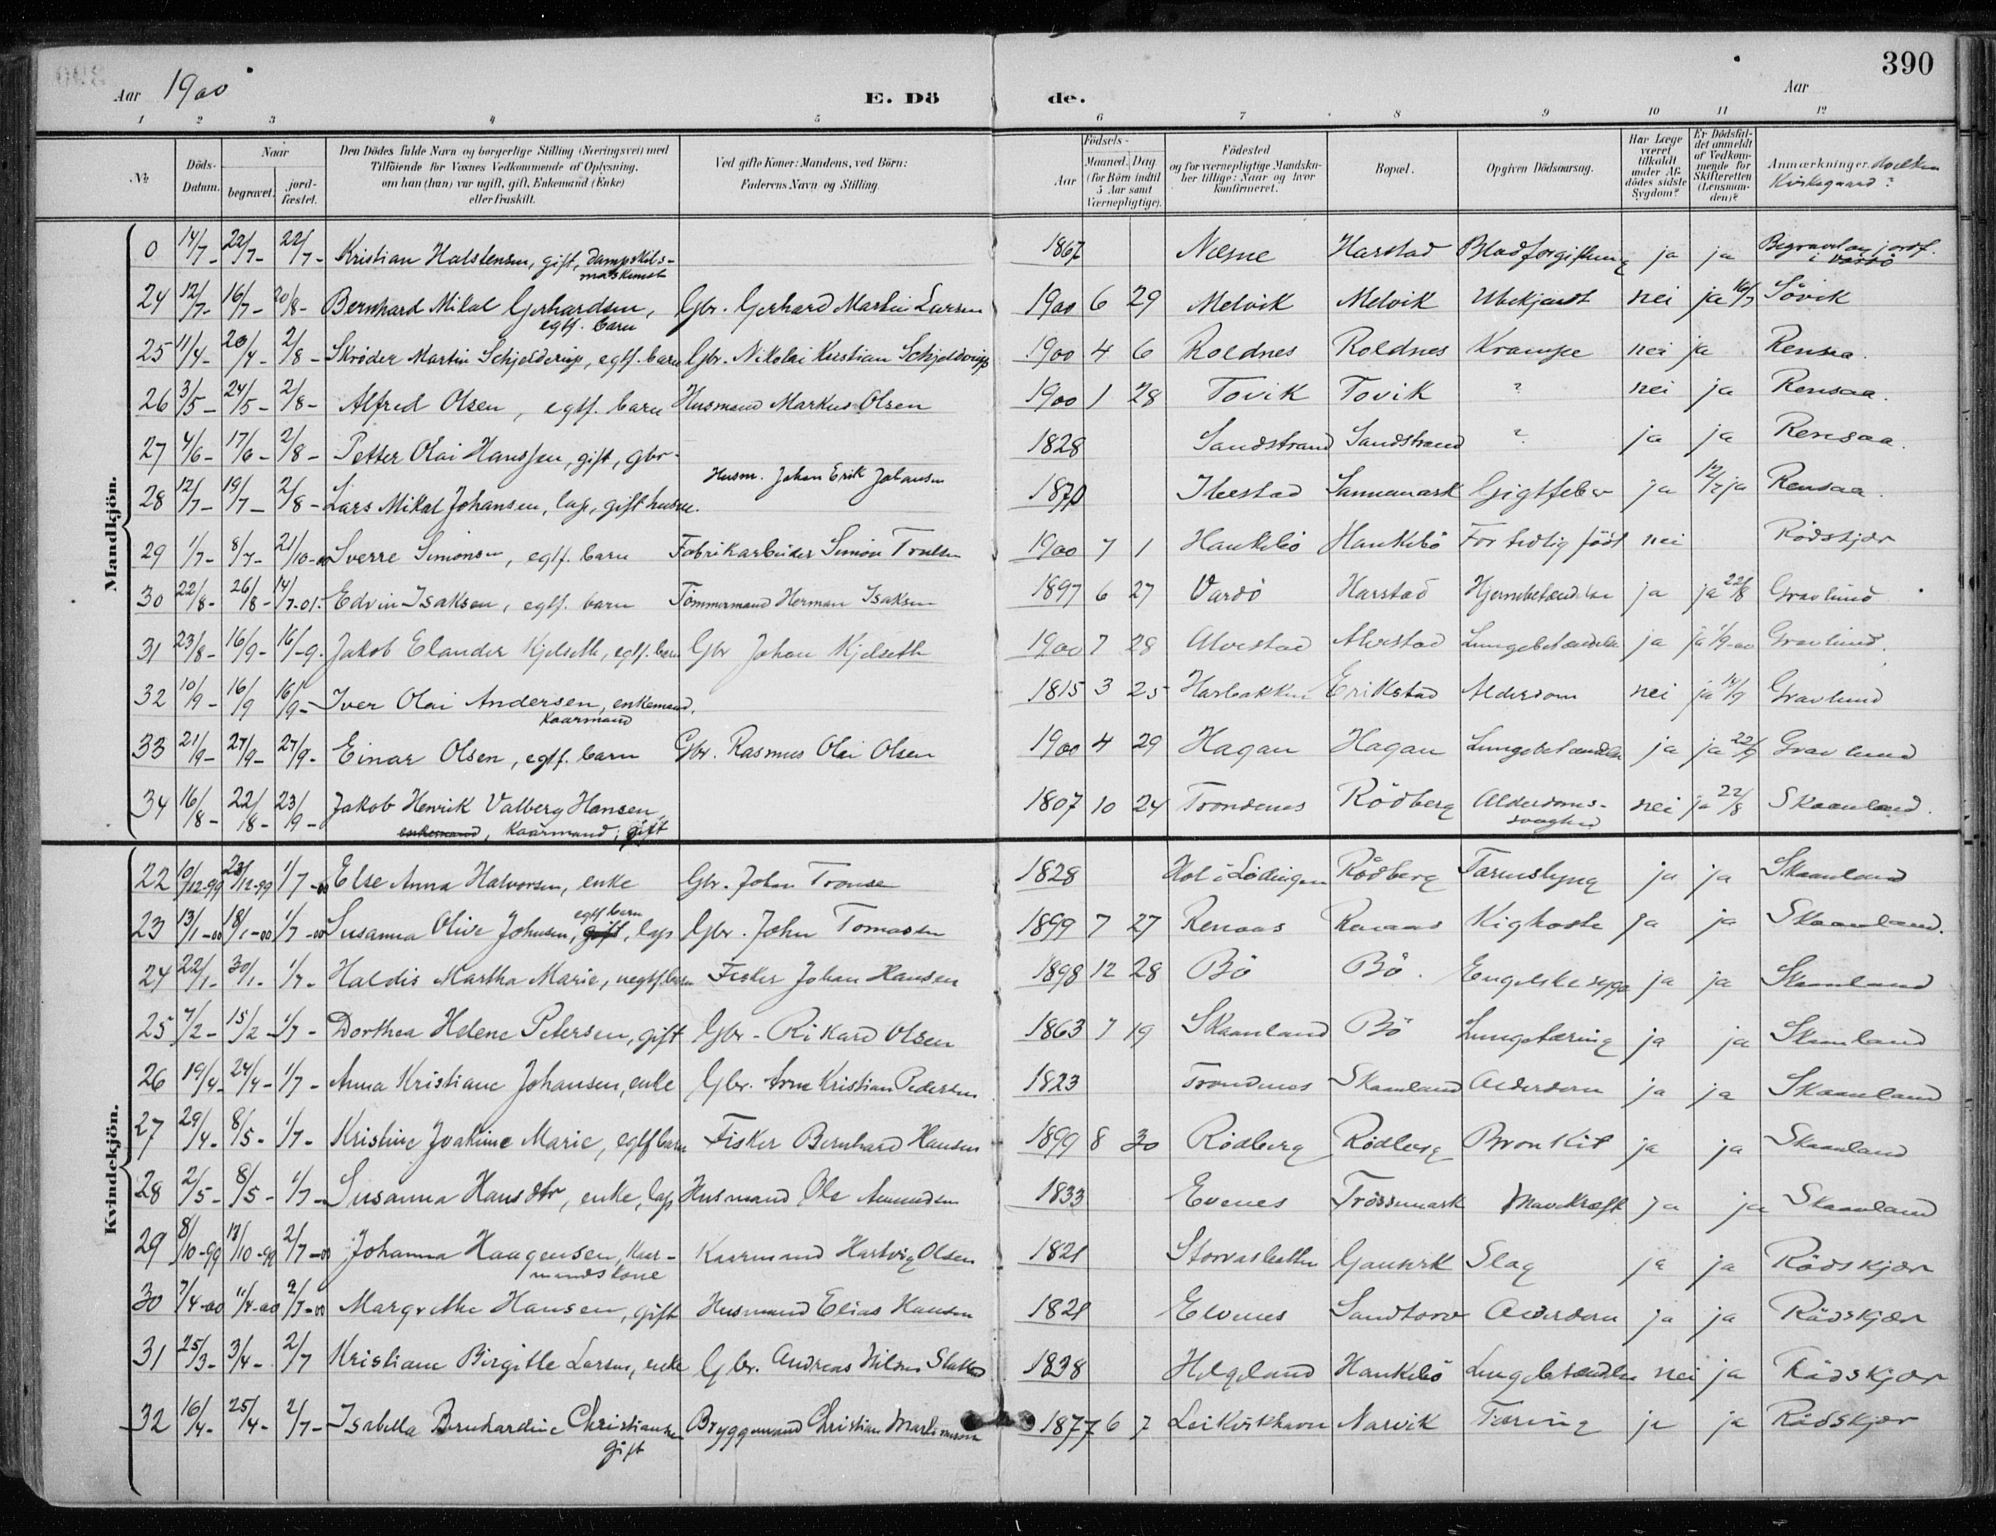 390
Aar 1900
E. Dö de.
Aar
1 2 3 4 5 6 7 8 9 10 11 12
No.
Döds-Datum.
Naar begravet. jordfæstet.
Den Dödes fulde Navn og borgerlige Stilling (Næringsvei) med Tilföiende for Voxnes Vedkommende af Oplysning, om han (hun) var ugift, gift, Enkemand (Enke) eller fraskilt.
Ved gifte Koner: Mandens, ved Börn: Faderens Navn og Stilling.
Födsels-
Aar Maaned. Dag (for Börn indtil 5 Aar samt Værnepligtige).
Födested og for værnepligtige Mandskaber tillige: Naar og hvor konfirmeret.
Bopæl.
Opgiven Dödsaarsag.
Har Læge været tilkaldt under Afdödes sidste Sygdom?
Er Dödsfaldet anmeldt af Vedkommende for Skifteretten (Lensmanden)?
Anmærkninger. Hvilken Kirkegaard?
Mandkjön.
0 14/7- 22/7- 22/7- Kristian Halstensen, gift, dampskibsmaskinist 1867 Nesne Harstad Blodforgiftning ja ja Begravet og jordf. i Vardö
24 12/7- 16/7- 20/8- Bernhard Mikal Gerhardsen, egtf. barn Gbr. Gerhard Martin Larsen 1900 6 29 Melvik Melvik Ubekjendt nei ja 16/7 Sövik
25 11/4- 20/4- 2/8- Skröder Martin Schjelderup, egtf. barn Gbr. Nikolai Kristian Schjelderup 1900 4 6 Roldnes Roldnes Krampe nei ja Rensaa.
26 3/5- 24/5- 2/8- Alfred Olsen, egtf. barn Husmand Markus Olsen 1900 1 28 Tovik Tovik ? nei ja Rensaa.
27 4/6- 17/6- 2/8- Petter Olai Hanssen, gift, gbr- 1828 Sandstrand Sandstrand ? ja ja Rensaa.
28 12/7- 19/7- 2/8- Lars Mikal Johansen, lap, gift husm. Husm. Johan Erik Johansen 1870 Ibestad Sannemark Gigtfeber ja 12/7 ja Rensaa.
29 1/7- 8/7- 21/10-00 Sverre Simonsen, egtf. barn Fabrikarbeider Simon Troelsen 1900 7 1 Haukebö Haukebö For tidlig födt nei Rödskjær
30 22/8- 26/8- 14/7-01. Edvin Isaksen, egtf. barn Tömmermand Herman Isaksen 1897 6 27 Vardö Harstad Hjernebetændelse ja ja 22/8 Gravlund
31 23/8- 16/9- 16/-9. Jakob Elander Kjelseth, egtf. barn Gbr Johan Kjelseth 1900 7 28 Alvestad Alvestad Lungebetændelse ja ja 1/9-00 Gravlund.
32 10/9- 16/9 16/9- Iver Olai Andersen, enkemand, Kaarmand 1815 3 25 Harbakken Erikstad Alderdom nei ja 14/9 Gravlund
33 21/9- 27/9- 27/9- Einar Olsen, egtf. barn Gbr. Rasmus Olai Olsen 1900 4 29 Hagan Hagan Lungebetændelse ja ja 22/9 Gravlund
34 16/8- 22/8- 23/9- Jakob Henrik Valberg Hansen, enkemand, Kaarmand, gift 1807 10 24 Trondenes Rödberg Alderdomssvaghed nei ja 22/8 Skaanland.
Kvindekjön.
22 10/12-99 23/12-99 1/7-00 Else Anna Halvorsen, enke Gbr. Johan Tronsen 1828 Hol i Lödingen Rödberg Tarmslyng ja ja Skaanland
23 13/1-00 18/1-00 1/7-00 Susanna Olive Johnsen, gift, egtf barn, lap Gbr. John Tomassen 1899 7 27 Renaas Renaas Kighoste ja ja Skaanland.
24 22/1- 30/1- 1/7- Haldis Martha Marie, uegtf barn Fisker Johan Hansen 1898 12 28 Bö Bö. Engelske syge ja ja Skaanland
25 7/2- 15/2- 1/7- Dorthea Helene Petersen, gift Gbr- Rikard Olsen 1863 7 19 Skaanland Bö Lungetæring ja ja Skaanland
26 19/4- 24/4- 1/7- Anna Kristiane Johansen, enke Gbr. Arne Kristian Pedersen 1823 Trondenes Skaanland Alderdom ja ja Skaanland
27 29/4- 8/5- 1/7- Kristine Joakime Marie, egtf barn Fisker Bernhard Hansen 1899 8 30 Rödberg Rödberg Bronkit ja ja Skaanland
28 2/5- 8/5- 1/7- Susanna Hansdtr, enke, lap Husmand Ole Amundsen 1833 Evenes Trössemark Mavekræft ja ja Skaanland
29 8/10-99 13/10-99 2/7-00 Johanna Haagensen, Kaarmandskone Kaarmand Hartvig Olsen 1821 Gausvik Slag ja ja Rödskjær
30 7/4-00 11/4-00 2/7-00 Margrethe Hansen, gift Husmand Elias Hansen 1821 Elvenes Sandtorv Alderdom ja ja Rödskjær
31 25/3- 3/4- 2/7 Kristiane Birgitte Larsen, enke Gbr. Andreas Nilsen 1838 Helgeland Haukebö Lungebetændelse nei ja Rödskjær
32 16/4- 25/4- 2/7- Isabella Bernhardine Christiansen gift Bryggemand Christian Martinussen 1877 6 7 Leikvikhavn Narvik Tæring ja ja Rödskjær